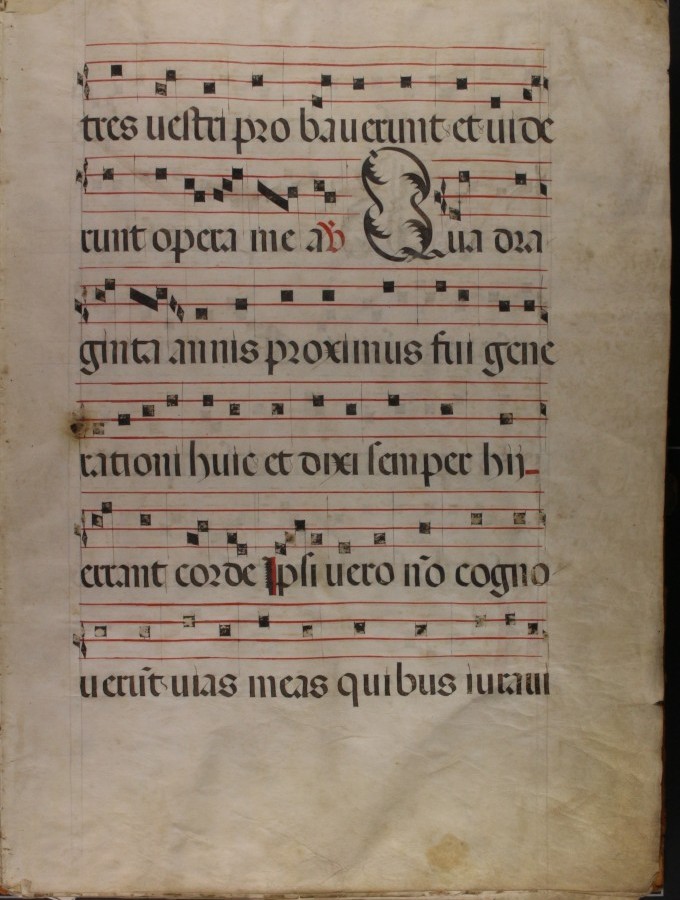 tres uestri pro bauerunt et uide
runt opera me a ℣ Qua dra
ginta annis proximus fui gene
rationi huic et dixi semper hij
errant corde Ipsi uero nõ cogno
uerũt uias meas quibus iuraui